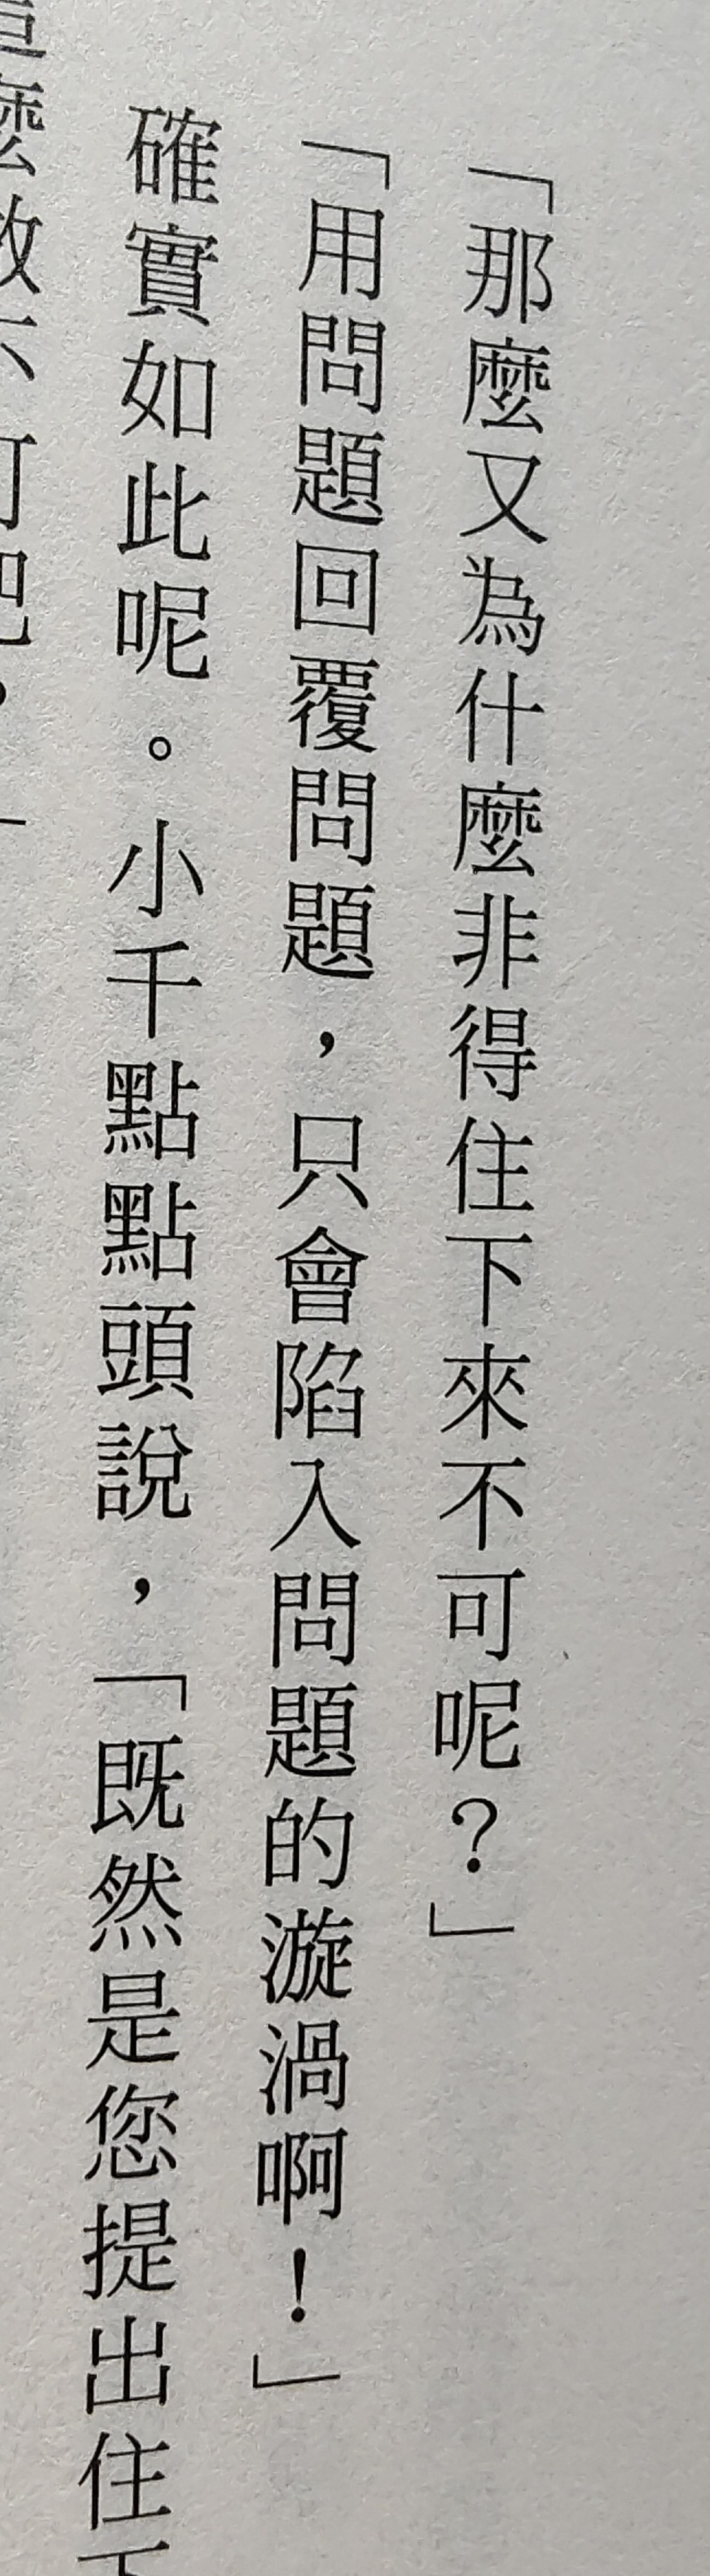 「那麼又為什麼非得住下來不可呢？」
「用問題回覆問題，只會陷入問題的漩渦啊！」
確實如此呢。小千點點頭說，「既然是您提出住